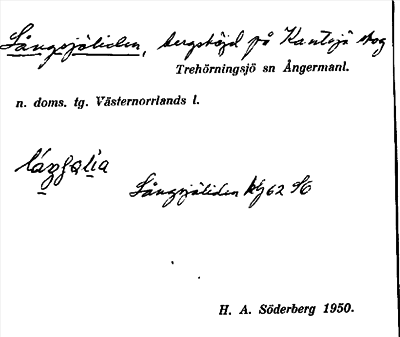 Långsjöliden, bergshöjd på Kantsjö skog
Trehörningsjö sn Ångermanl.
n. doms. tg. Västernorrlands l.
Långsjöliden
H. A. Söderberg 1950.